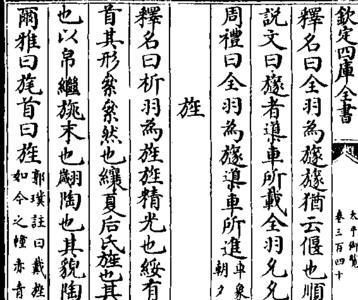 欽定四庫全書
太平御覽
卷三百四十
釋名曰全羽為旞旞猶云偃也順
說文曰旞者導車所載全羽允允
周禮曰全羽為旞導車所進車象朝夕
旌
釋名曰析羽為旌旌精光也綏有
首其形衰衰然也纕夏后氏旌也其
也以帛繼旐末也翿陶也其貌陶
爾雅曰旄首曰旌郭璞註曰載旄如今之幢亦青